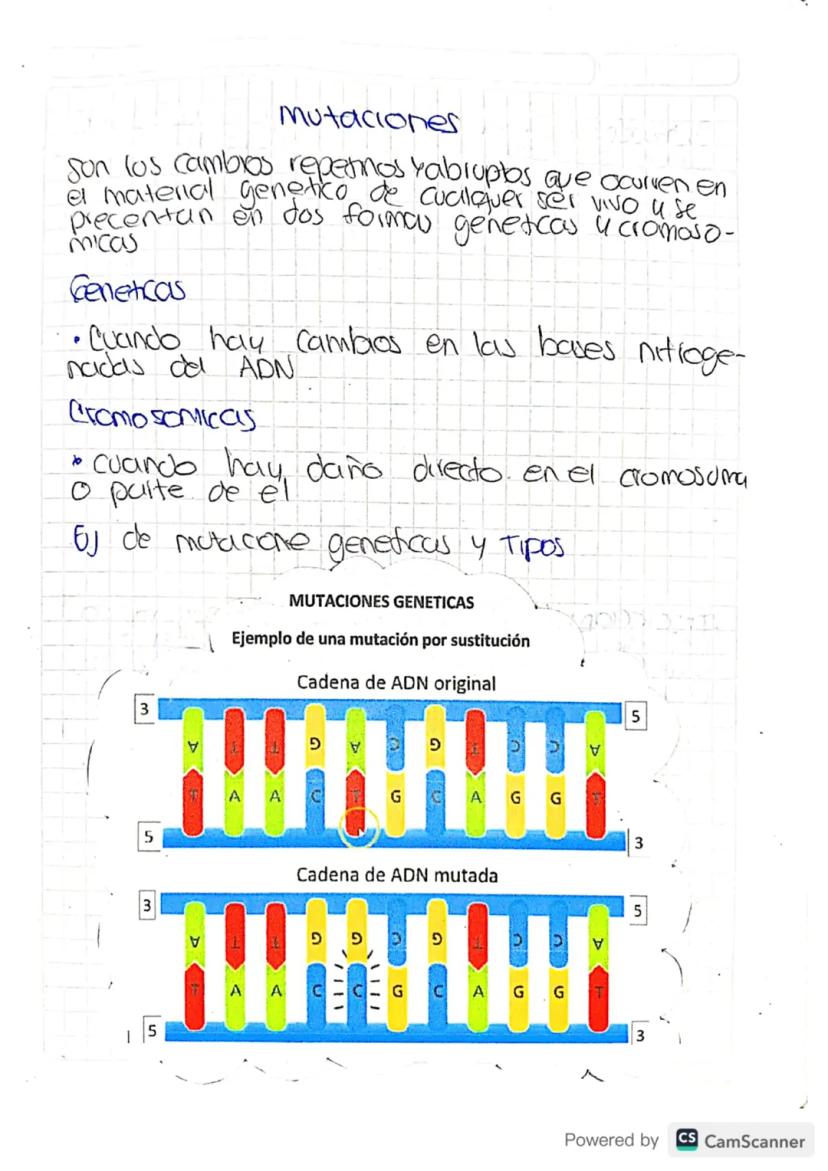 Mutaciones
Son los cambios repetinos y abruptos que ocurren en
el material genetico de cualquier ser vivo y se
precentan en dos formas geneticas y cromoso-
micas
Geneticas
• Cuando hay cambios en las bases nitroge-
nadas del ADN
Cromosomicas
• cuando hay daño directo en el cromosoma
o parte de el
Ej de mutacione geneticas y Tipos
MUTACIONES GENETICAS
Ejemplo de una mutación por sustitución
Cadena de ADN original
3 5
A T T G A C G T C C A
T A A C T G C A G G T
5 3
Cadena de ADN mutada
3 5
A T T G G C G T C C A
T A A C C G C A G G T
5 3
Powered by CS CamScanner